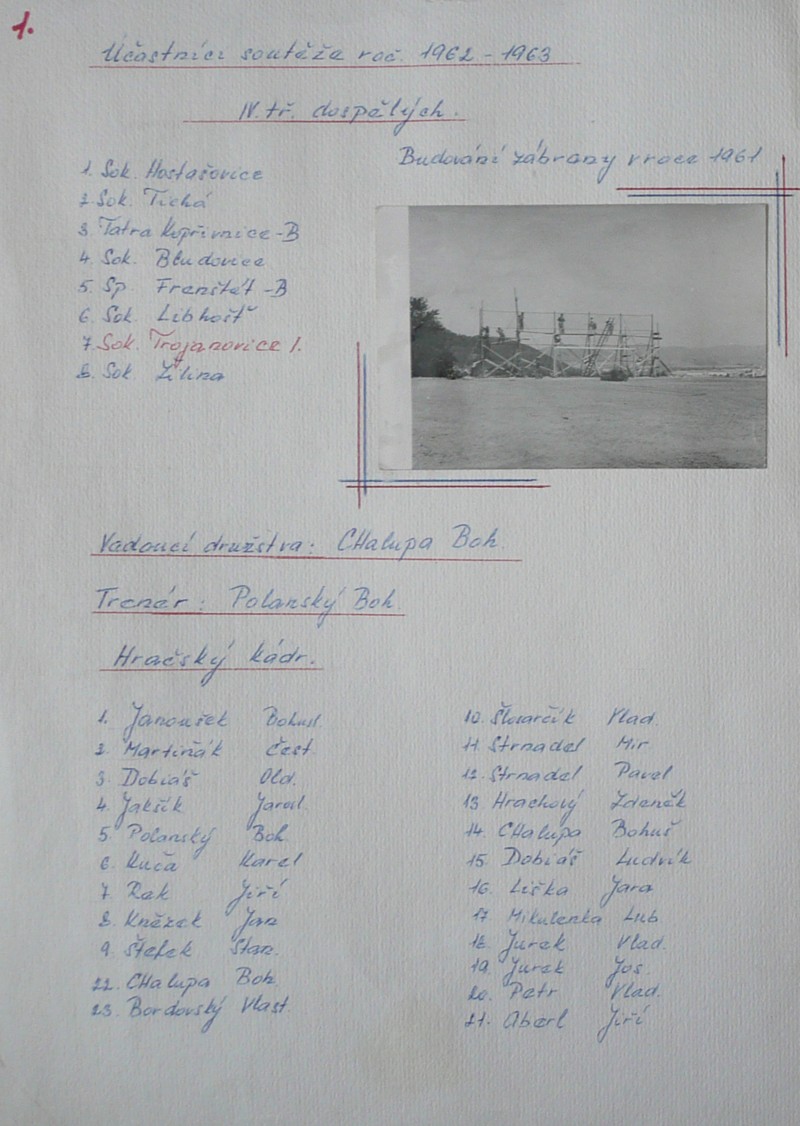 1.
Účastníci soutěže roč. 1962 - 1963
IV. tř. dospělých.
1. Sok. Hostašovice
2. Sok. Tichá
3. Tatra Kopřivnice - B
4. Sok. Bludovice
5. Sp. Frenštát - B
6. Sok. Libhošť
7. Sok. Trojanovice 1.
8. Sok Žilina
Budování zábrany v roce 1961
Vedoucí družstva: CHalupa Boh.
Trenér: Polanský Boh.
Hráčský kádr.
1. Janoušek Bohusl.
2. Martiňák Čest.
3. Dobiáš Old.
4. Jakšík Jarosl.
5. Polanský Boh.
6. Kuča Karel
7. Rek Jiří
8. Knězek Jan
9. Štefek Stan.
22. CHalupa Boh.
23. Bordovský Vlast.
10. Vlad.
11. Strnadel Mir
12. Strnadel Pavel
13. Hrachový Zdeněk
14. CHalupa Bohuš
15. Dobiáš Ludvík
16. Liška Jara
17. Mikulenka Lub
18. Jurek Vlad.
19. Jurek Jos.
20. Petr Vlad.
21. Aberl Jiří